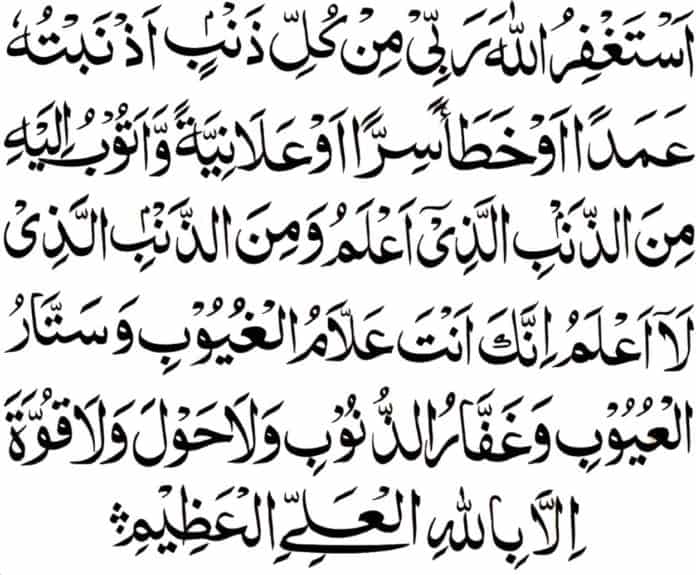 اَسْتَغْفِرُ اللهَ رَبِّیْ مِنْ کُلِّ ذَنْۢبٍ اَذْنَبْتُهٗ
عَمَدًا اَوْ خَطَأً سِرًّا اَوْ عَلَانِیَةً وَّاَتُوْبُ اِلَیْهِ
مِنَ الذَّنْۢبِ الَّذِیْٓ اَعْلَمُ وَمِنَ الذَّنْۢبِ الَّذِیْ
لَآ اَعْلَمُ اِنَّكَ اَنْتَ عَلَّامُ الْغُیُوْبِ وَسَتَّارُ
الْعُیُوْبِ وَغَفَّارُ الذُّنُوْبِ وَلَا حَوْلَ وَلَا قُوَّةَ
اِلَّا بِاللهِ الْعَلِیِّ الْعَظِیْمِ